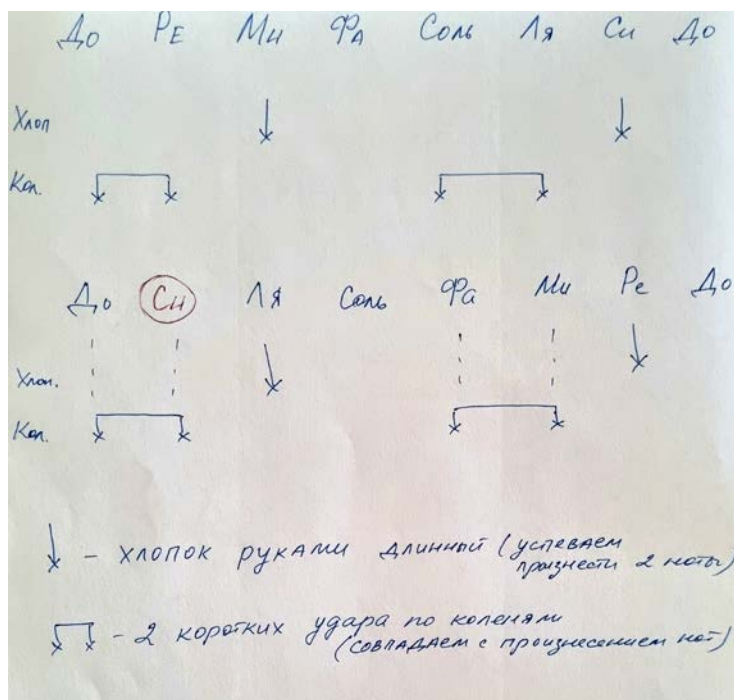 До Ре Ми Фа Соль Ля Си До
Хлоп
Кол.
До Си Ля Соль Фа Ми Ре До
Хлоп.
Кол.
- хлопок руками длинный (успеваем
произнести 2 ноты)
- 2 коротких удара по коленям
(совпадаем с произнесением нот)